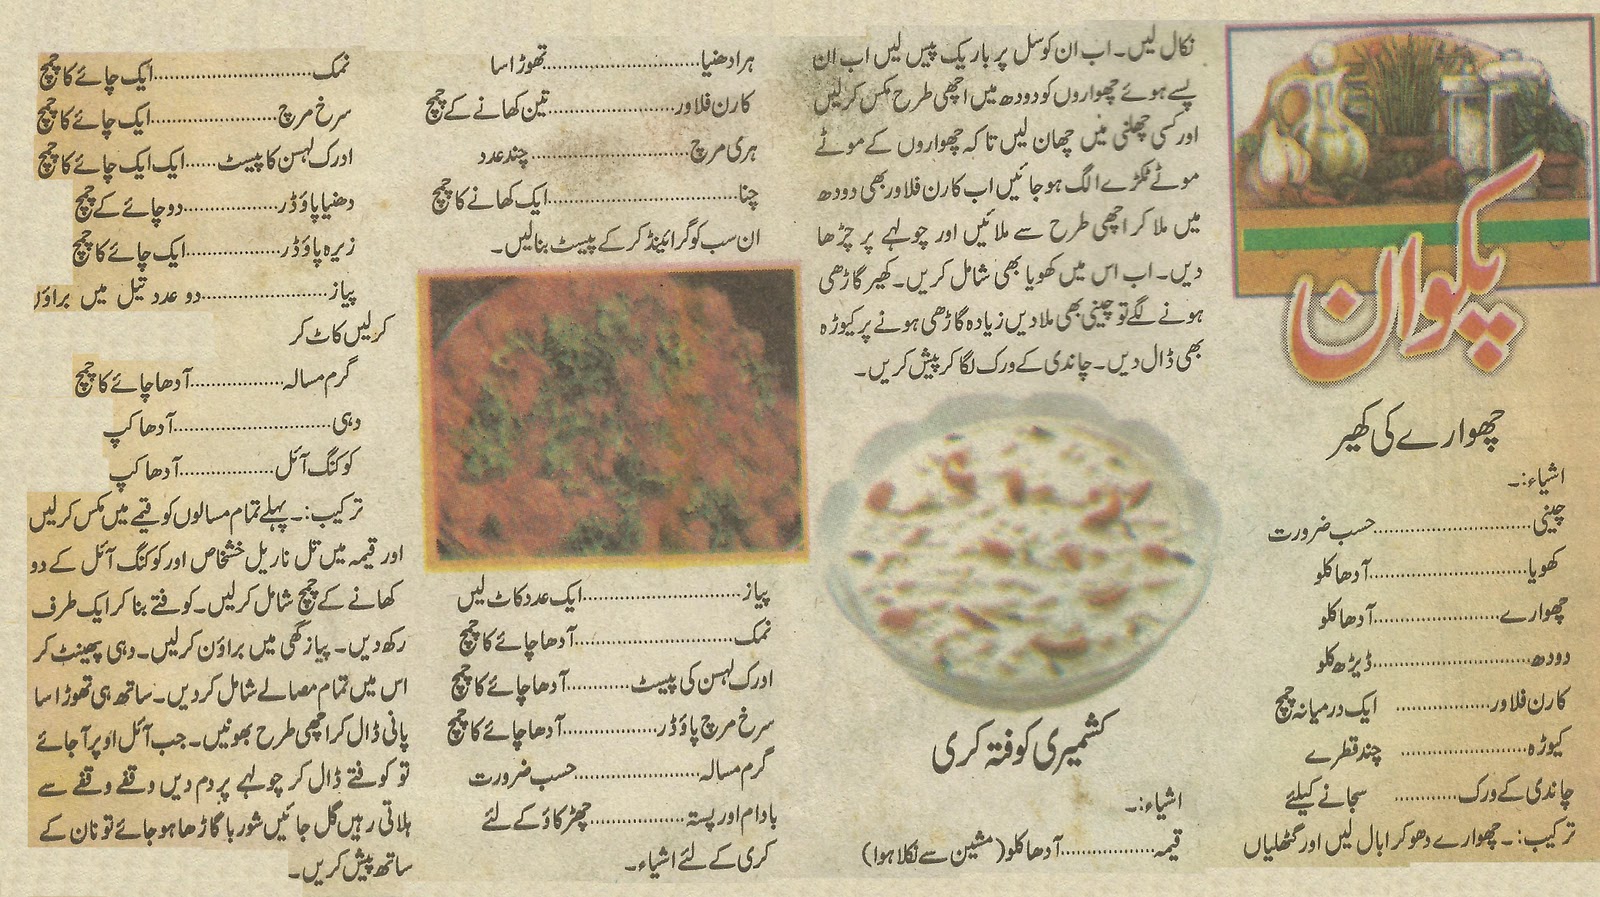 پکوان
چھوارے کی کھیر
اشیاء:۔
چینی..............................حسب ضرورت
کھویا..............................آدھا کلو
چھوارے..............................آدھا کلو
دودھ..............................ڈیڑھ کلو
کارن فلاور.................. ایک درمیانہ چمچ
کیوڑہ.................. چند قطرے
چاندی کے ورک............ سجانے کیلئے
ترکیب:۔ چھوارے دھو کر ابال لیں اور گٹھلیاں
نکال لیں۔ اب ان کو سل پر باریک پیس لیں اب ان
پسے ہوئے چھواروں کو دودھ میں اچھی طرح مکس کر لیں
اور کسی چھلنی میں چھان لیں تاکہ چھواروں کے موٹے
موٹے ٹکڑے الگ ہو جائیں اب کارن فلاور بھی دودھ
میں ملا کر اچھی طرح سے ملائیں اور چولہے پر چڑھا
دیں۔ اب اس میں کھویا بھی شامل کریں۔ کھیر گاڑھی
ہونے لگے تو چینی بھی ملا دیں زیادہ گاڑھی ہونے پر کیوڑہ
بھی ڈال دیں۔ چاندی کے ورک لگا کر پیش کریں۔
کشمیری کوفتہ کری
اشیاء:۔
قیمہ..................آدھا کلو (مشین سے نکلا ہوا)
ہرا دھنیا..............................تھوڑا سا
کارن فلاور........................تین کھانے کے چمچ
ہری مرچ.............................. چند عدد
چنا..............................ایک کھانے کا چمچ
ان سب کو گرائینڈ کر کے پیسٹ بنالیں۔
پیاز..............................ایک عدد کاٹ لیں
نمک..............................آدھا چائے کا چمچ
ادرک لہسن کی پیسٹ............آدھا چائے کا چمچ
سرخ مرچ پاؤڈر..................آدھا چائے کا چمچ
گرم مسالہ........................حسب ضرورت
بادام اور پستہ..................چھڑکاؤ کے لئے
کری کے لئے اشیاء۔
نمک..............................ایک چائے کا چمچ
سرخ مرچ........................ایک چائے کا چمچ
ادرک لہسن کا پیسٹ......ایک ایک چائے کا چمچ
دھنیا پاؤڈر..................دو چائے کے چمچ
زیرہ پاؤڈر..................ایک چائے کا چمچ
پیاز........................دو عدد تیل میں براؤن
کر لیں کاٹ کر
گرم مسالہ..................آدھا چائے کا چمچ
دہی..............................آدھا کپ
کوکنگ آئل..................آدھا کپ
ترکیب:۔ پہلے تمام مسالوں کو قیمے میں مکس کر لیں
اور قیمہ میں تل ناریل خشخاص اور کوکنگ آئل کے دو
کھانے کے چمچ شامل کر لیں۔ کوفتے بنا کر ایک طرف
رکھ دیں۔ پیاز گھی میں براؤن کر لیں۔ دہی پھینٹ کر
اس میں تمام مصالے شامل کر دیں۔ ساتھ ہی تھوڑا سا
پانی ڈال کر اچھی طرح بھونیں۔ جب آئل اوپر آ جائے
تو کوفتے ڈال کر چولہے پر دم دیں وقفے وقفے سے
ہلاتی رہیں گل جائیں شوربا گاڑھا ہو جائے تو نان کے
ساتھ پیش کریں۔